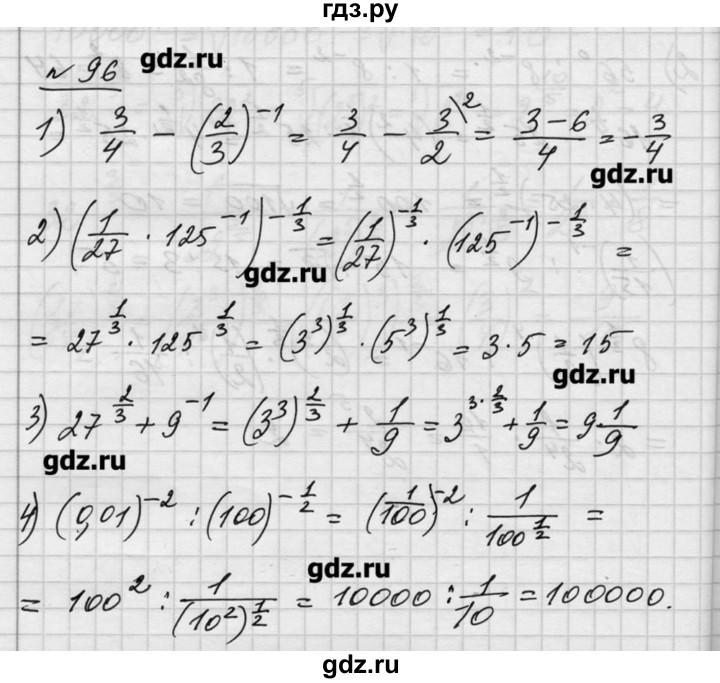 гдз.ру
№ 96
gdz.ru
1) 3/4 − (2/3)^−1 = 3/4 − 3/2^\2 = (3−6)/4 = −3/4
gdz.ru
2) (1/27 · 125^−1)^−1/3 = (1/27)^−1/3 · (125^−1)^−1/3 =
gdz.ru
= 27^1/3 · 125^1/3 = (3^3)^1/3 · (5^3)^1/3 = 3 · 5 = 15
gdz.ru
3) 27^2/3 + 9^−1 = (3^3)^2/3 + 1/9 = 3^3·2/3 + 1/9 = 9 1/9
gdz.ru
4) (0,01)^−2 : (100)^−1/2 = (1/100)^−2 : 1/100^1/2 =
gdz.ru
= 100^2 : 1/(10^2)^1/2 = 10000 : 1/10 = 100000.
gdz.ru